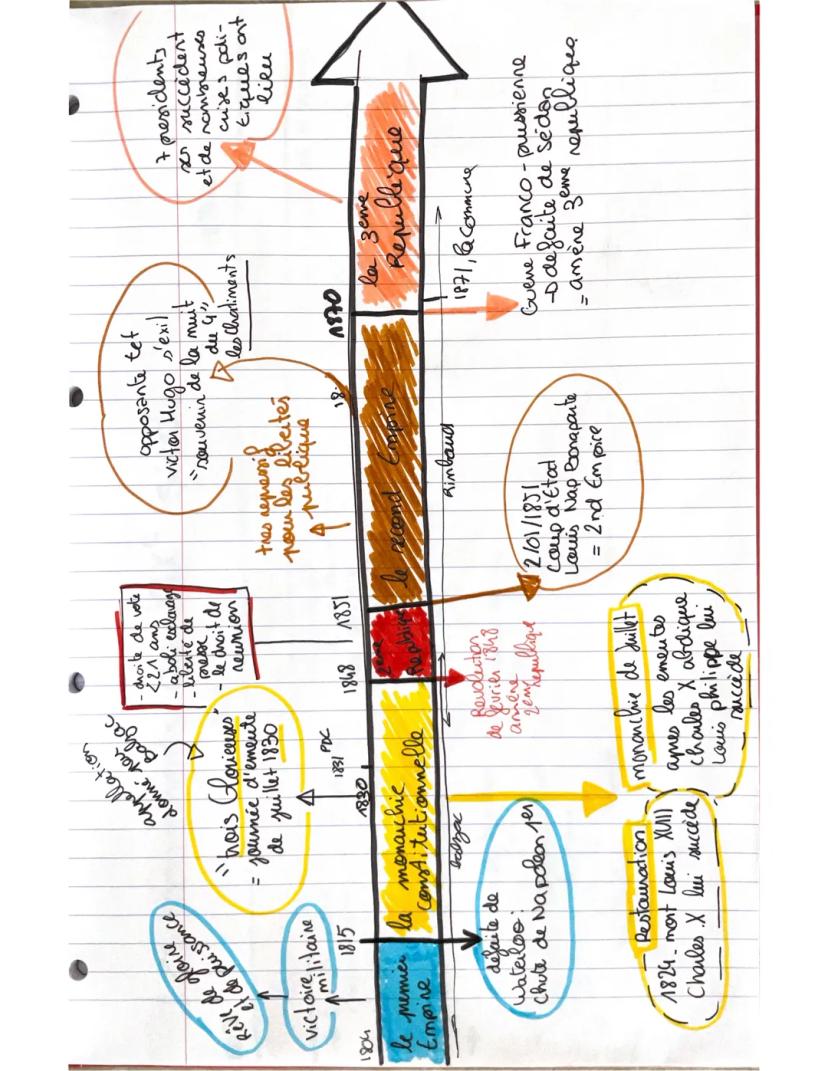 Rêve de gloire
et de puissance
victoire
militaire
appellation
donné par
Balzac
"trois Glorieuses"
= journée d'emeute
de juillet 1830
- droite de vote
<21 ans
- aboli esclavage
- liberté de
presse
- le droit de
reunion
très repressif
pour les libertés
publique
opposante tet
victor Hugo s'exil
="souvenir de la nuit
du 4"
les chatiments
7 presidents
se succèdent
et de nombreuses
crises poli-
tiques ont
lieu
1804
1815
1830
1831 PDC
1848
1851
18.
1870
le premier
Empire
la monarchie
constitutionnelle
2ème
Republique
le second Empire
la 3eme
Republique
Balzac
Rimbaud
1871, la commune
defaite de
Waterloo:
chute de Napoleon 1er
Revolution
de fevrier 1848
amène
2eme republique
2/01/1851
Coup d'Etat
Louis Nap Bonaparte
= 2nd Empire
Guerre Franco-prussienne
→ defaite de Sédan
= amène 3eme republique
Restauration
1824 - mort Louis XVIII
Charles X lui succède
monarchie de Juillet
apres les emeutes
charles X abdique
Louis philippe lui
succède